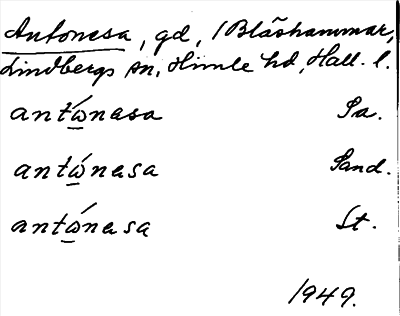 Antonesa, gd, /Blåshammar,
Lindbergs sn, Himle hd, Hall. l.
antώ̲nasa Sa.
antώ̲nesa Sand.
antώ̲nesa St.
1949.